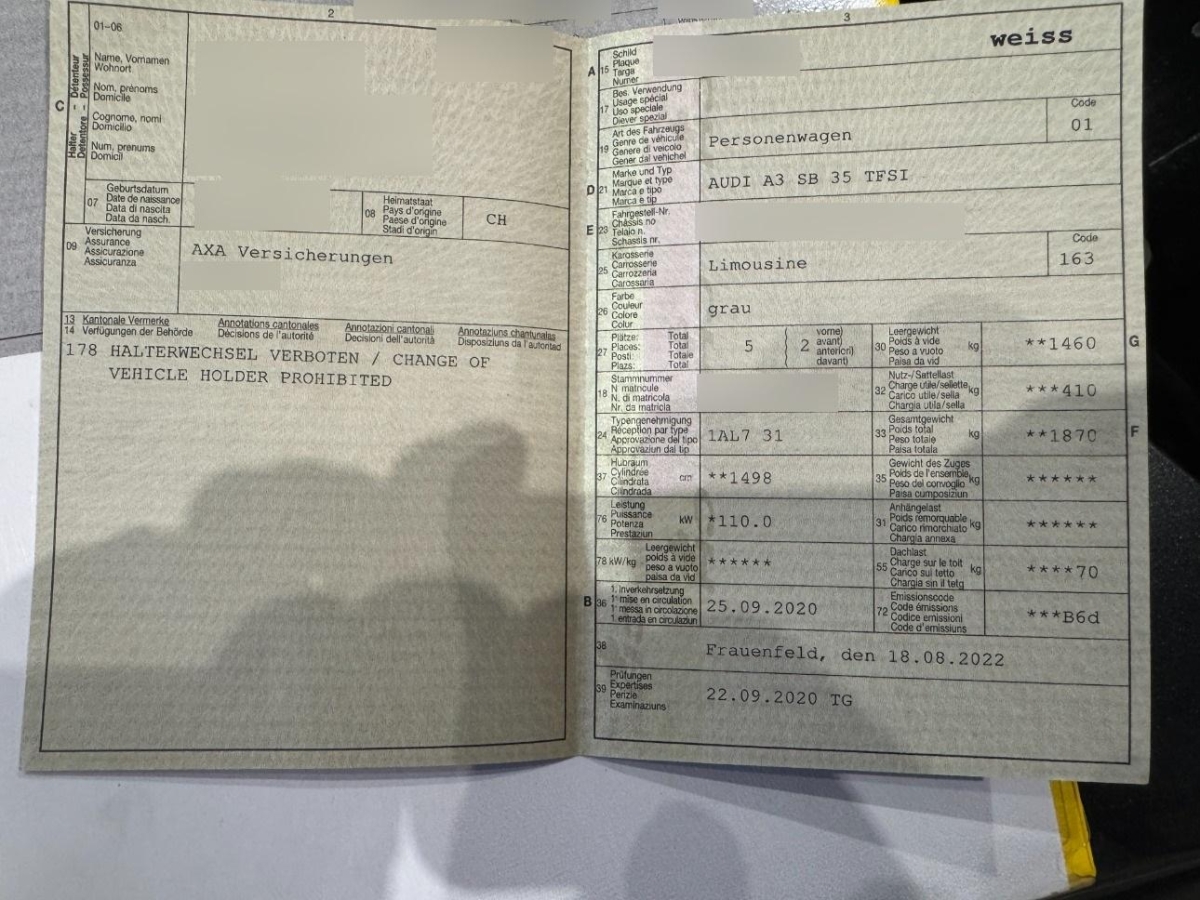 2
01-06
C
Halter – Détenteur
Detentore – Possessur
Name, Vornamen
Wohnort
Nom, prénoms
Domicile
Cognome, nomi
Domicilio
Num, prenums
Domicil
07
Geburtsdatum
Date de naissance
Data di nascita
Data da nasch.
08
Heimatstaat
Pays d'origine
Paese d'origine
Stadi d'origin
CH
09
Versicherung
Assurance
Assicurazione
Assicuranza
AXA Versicherungen
13 Kantonale Vermerke
14 Verfügungen der Behörde
Annotations cantonales
Décisions de l'autorité
Annotazioni cantonali
Decisioni dell'autorità
Annotaziuns chantunalas
Disposiziuns da l'autoritad
178 HALTERWECHSEL VERBOTEN / CHANGE OF
VEHICLE HOLDER PROHIBITED
3
weiss
A 15
Schild
Plaque
Targa
Numer
17
Bes. Verwendung
Usage spécial
Uso speciale
Diever spezial
19
Art des Fahrzeugs
Genre de véhicule
Genere di veicolo
Gener dal vehichel
Personenwagen
Code
01
D 21
Marke und Typ
Marque et type
Marca e tipo
Marca e tip
AUDI A3 SB 35 TFSI
E 23
Fahrgestell-Nr.
Châssis no
Telaio n.
Schassis nr.
25
Karosserie
Carrosserie
Carrozzeria
Carossaria
Limousine
Code
163
26
Farbe
Couleur
Colore
Colur
grau
27
Plätze: Total
Places: Total
Posti: Totale
Plazs: Total
5
2
vorne)
avant)
anteriori)
davant)
30
Leergewicht
Poids à vide
Peso a vuoto
Paisa da vid
kg
**1460
G
18
Stammnummer
N matricule
N. di matricola
Nr. da matricla
32
Nutz-/Sattellast
Charge utile/sellette
Carico utile/sella
Chargia utila/sella
kg
***410
24
Typengenehmigung
Réception par type
Approvazione del tipo
Approvaziun dal tip
1AL7 31
33
Gesamtgewicht
Poids total
Peso totale
Paisa totala
kg
**1870
F
37
Hubraum
Cylindrée
Cilindrata
Cilindrada
cm
**1498
35
Gewicht des Zuges
Poids de l'ensemble
Peso del convoglio
Paisa cumposiziun
kg
******
76
Leistung
Puissance
Potenza
Prestaziun
kW
*110.0
31
Anhängelast
Poids remorquable
Carico rimorchiato
Chargia annexa
kg
******
78 kW/kg
Leergewicht
poids à vide
peso a vuoto
paisa da vid
******
55
Dachlast
Charge sur le toit
Carico sul tetto
Chargia sin il tetg
kg
****70
B 36
1. Inverkehrsetzung
1 mise en circulation
1 messa in circolazione
1. entrada en circulaziun
25.09.2020
72
Emissionscode
Code émissions
Codice emissioni
Code d'emissiuns
***B6d
38
Frauenfeld, den 18.08.2022
39
Prüfungen
Expertises
Perizie
Examinaziuns
22.09.2020 TG